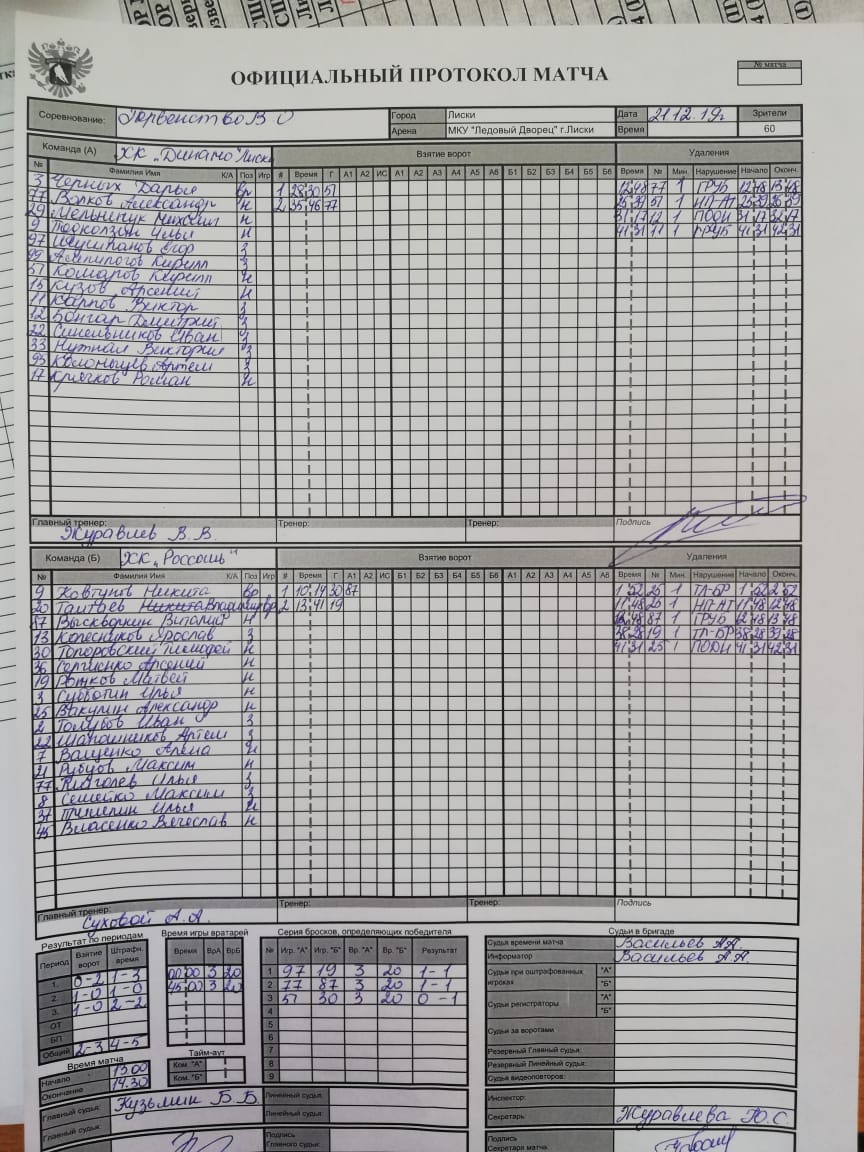 ОФИЦИАЛЬНЫЙ ПРОТОКОЛ МАТЧА
№ матча
Соревнование: Первенство В О Город Лиски Дата 21.12.19г Зрители
Арена МКУ "Ледовый Дворец" г.Лиски Время 60
Команда (А) ХК „Динамо" Лиски Взятие ворот Удаления
№ Фамилия Имя К/А Поз Игр # Время Г А1 А2 ИС А1 А2 А3 А4 А5 А6 Б1 Б2 Б3 Б4 Б5 Б6 Время № Мин. Нарушение Начало Оконч.
3 Черных Дарья вр 1 28 30 51 12 48 77 1 ГРУБ 12 48 13 48
77 Волков Александр н 2 35 46 77 25 39 51 1 НП-АТ 25 39 26 39
29 Мельничук Михаил н 31 17 12 1 ПОДН 31 17 32 17
9 Подколзин Илья н 41 31 11 1 ГРУБ 41 31 42 31
97 Егор з
99 Ампилогов Кирилл з
51 Комаров Кирилл н
15 Кузов Арсений н
11 Карпов Виктор з
12 Бонгар Дмитрий з
22 Синельников Иван з
33 Виктория з
93 Артем з
17 Крячков Роман н
Главный тренер: Журавлев В. В. Тренер: Тренер: Подпись
Команда (Б) ХК „Россошь" Взятие ворот Удаления
№ Фамилия Имя К/А Поз Игр # Время Г А1 А2 ИС Б1 Б2 Б3 Б4 Б5 Б6 А1 А2 А3 А4 А5 А6 Время № Мин. Нарушение Начало Оконч.
9 Ковтунов Никита вр 1 10 14 30 87 1 52 25 1 ТЛ-БР 1 52 2 52
20 Владимир вр 2 13 41 19 11 48 20 1 НП-АТ 11 48 12 48
87 Выскворкин Виталий н 12 48 87 1 ГРУБ 12 48 13 48
13 Колесников Ярослав з 38 28 19 1 ТЛ-БР 38 28 39 28
30 Топоровский Тимофей н 41 31 25 1 ПОДН 41 31 42 31
36 Сергиенко Арсений н
19 Рожков Матвей н
3 Субботин Илья н
25 Вакулин Александр н
2 Голубов Иван з
22 Шапошников Артем з
7 Ващенко Арина н
21 Рубцов Максим н
77 Илья з
8 Семейко Максим з
37 Илья н
45 Власенко Вячеслав н
Главный тренер: Суховой А. А. Тренер: Тренер: Подпись
Результат по периодам
Период Взятие ворот Штрафн. время
1. 0-2 1-3
2. 1-0 1-0
3. 1-0 2-2
ОТ
БП
Общий 2-3 4-5
Время матча
Начало 13.00
Окончание 14.30
Время игры вратарей
Время ВрА ВрБ
00 00 3 20
45 00 3 20
Тайм-аут
Ком. "А"
Ком. "Б"
Серия бросков, определяющих победителя
№ Игр. "А" Игр. "Б" Вр. "А" Вр. "Б" Результат
1 97 19 3 20 1-1
2 77 87 3 20 1-1
3 51 30 3 20 0-1
4
5
6
7
8
9
Судьи в бригаде
Судья времени матча Васильев А.А.
Информатор Васильев А.А.
Судьи при оштрафованных игроках "А" "Б"
Судьи регистраторы "А" "Б"
Судьи за воротами
Резервный Главный судья:
Резервный Линейный судья:
Судья видеоповторов:
Главный судья: Кузьмин Б. Б. Линейный судья: Инспектор:
Главный судья: Линейный судья: Секретарь: Журавлева Ю.С.
Подпись Главного судьи: Подпись Секретаря матча